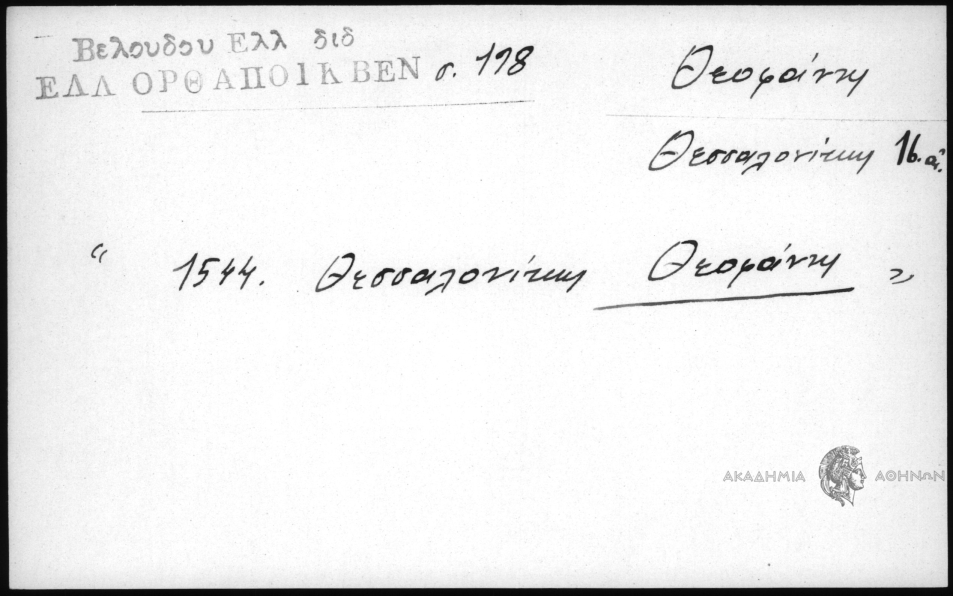 Βελουδου Ελλ διδ
ΕΛΛ ΟΡΘ ΑΠΟΙΚ ΒΕΝ σ. 118
Θεοφάνη
Θεσσαλονίκη 16. αἰ.
“ 1544. Θεσσαλονίκη Θεοφάνη „
ΑΚΑΔΗΜΙΑ ΑΘΗΝΩΝ